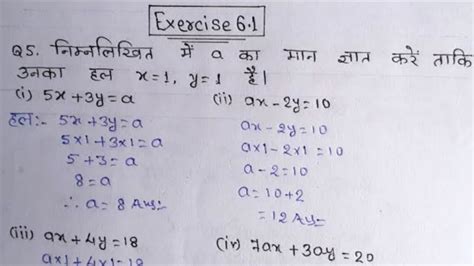 Exercise 6.1
Q5. निम्नलिखित में a का मान ज्ञात करें ताकि
उनका हल x=1, y=1 है।
(i) 5x+3y=a
(ii) ax-2y=10
हल:- 5x+3y=a
5×1+3×1=a
5+3=a
8=a
∴ a=8 Ans:-
ax-2y=10
a×1-2×1=10
a-2=10
a=10+2
=12 Ans:-
(iii) ax+4y=18
ax1+4x1=18
(iv) 7ax+3ay=20